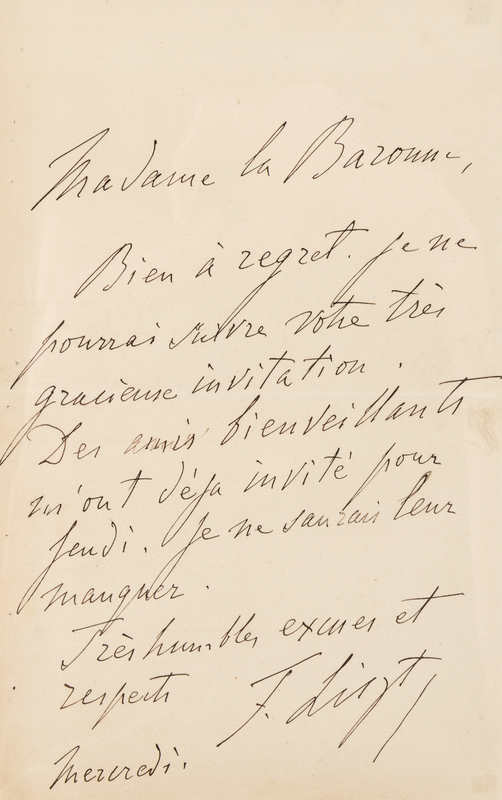 Madame la Baronne,
Bien à regret. je ne
pourrai suivre votre très
gracieuse invitation.
Des amis bienveillants
m'ont déja invité pour
jeudi. Je ne saurais leur
manquer.
Très humbles excuses et
respects
F. Liszt
Mercredi.